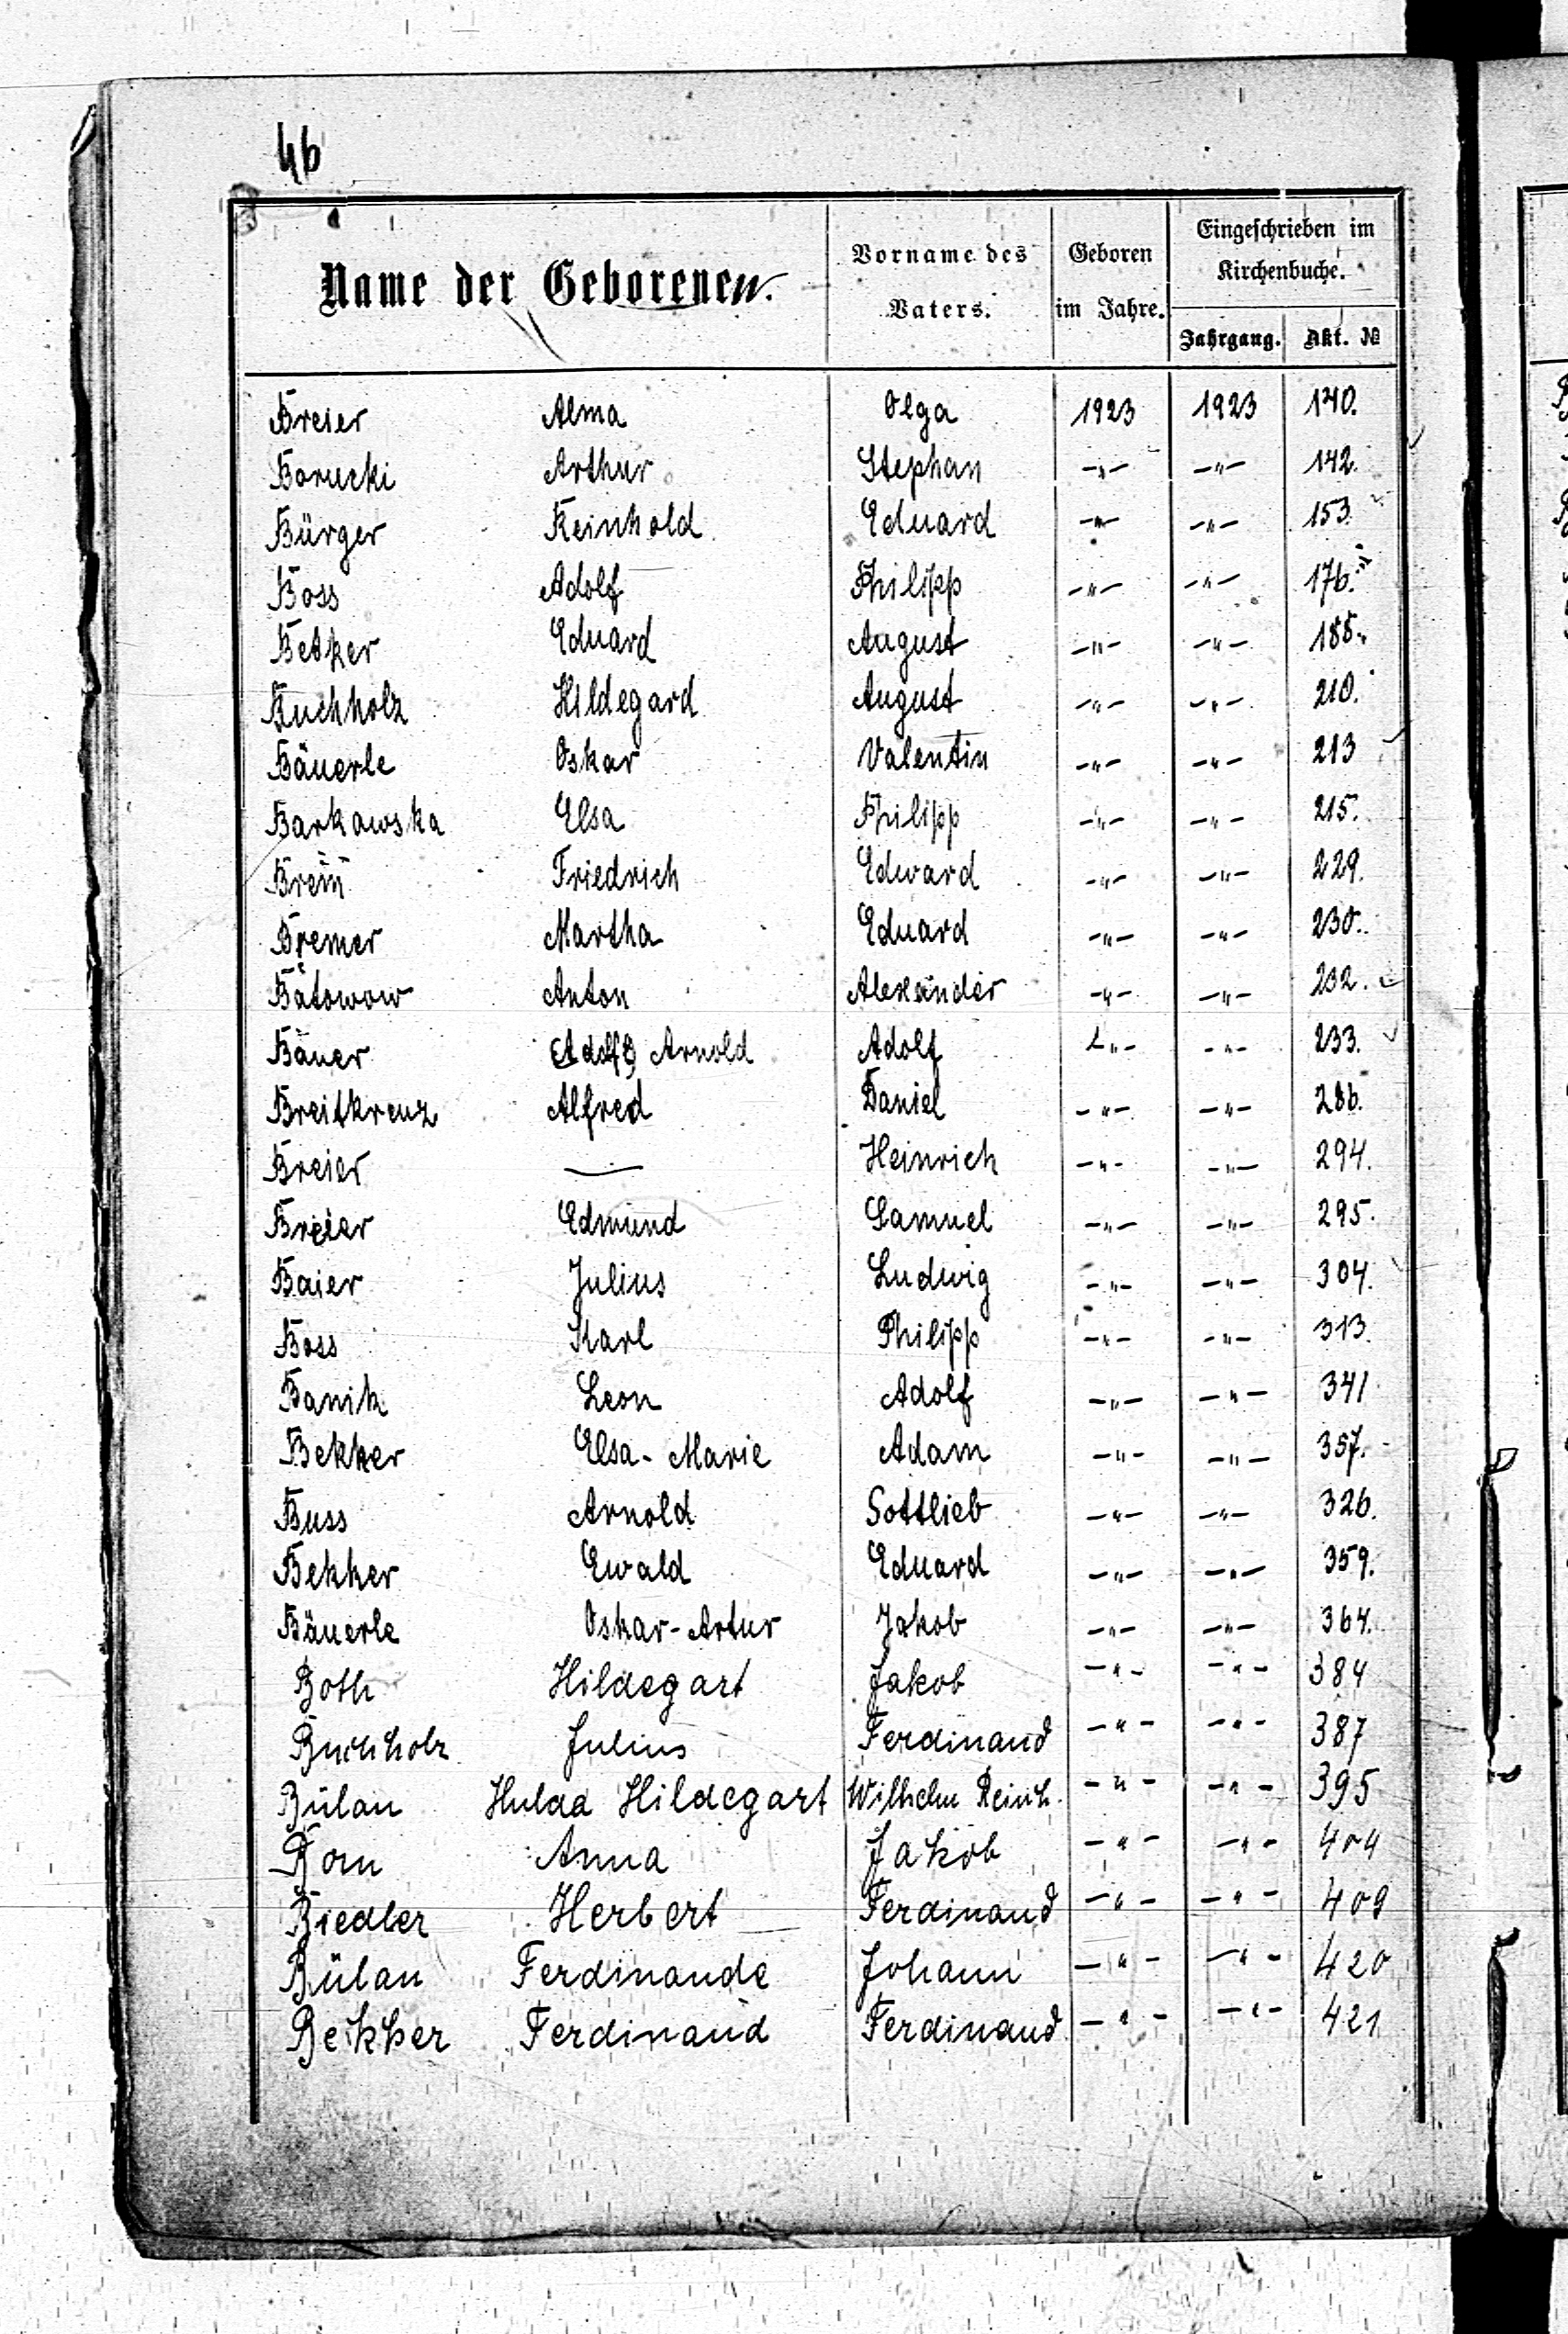 46
Name der Geborenen.
Vorname des Vaters.
Geboren im Jahre.
Eingeschrieben im Kirchenbuche.
Jahrgang. Akt. №
Breier Alma Olga 1923 1923 140.
Borucki Arthur Stephan -"- -"- 142.
Bürger Reinhold Eduard -"- -"- 153.
Boss Adolf Philipp -"- -"- 176.
Betker Eduard August -"- -"- 185.
Buchholz Hildegard August -"- -"- 210.
Bäuerle Oskar Valentin -"- -"- 213
Barkowska Elsa Philipp -"- -"- 215.
Friedrich Edward -"- -"- 229.
Bremer Martha Eduard -"- -"- 230.
Batowow Anton Alexander -"- -"- 232.
Bauer Adolf Arnold Adolf -"- -"- 233.
Breitkreuz Alfred Daniel -"- -"- 286.
Breier — Heinrich -"- -"- 294.
Breier Edmund Samuel -"- -"- 295.
Baier Julius Ludwig -"- -"- 304.
Boss Karl Philipp -"- -"- 313.
Banik Leon Adolf -"- -"- 341
Bekker Elsa-Marie Adam -"- -"- 357.
Buss Arnold Gottlieb -"- -"- 326.
Bekker Ewald Eduard -"- -"- 359.
Bäuerle Oskar-Artur Jakob -"- -"- 364.
Both Hildegart Jakob -"- -"- 384
Buchholz Julius Ferdinand -"- -"- 387
Bülau Hulda Hildegart Wilhelm Reinh. -"- -"- 395
Born Anna Jakob -"- -"- 404
Biedler Herbert Ferdinand -"- -"- 409
Bülau Ferdinande Johann -"- -"- 420
Bekker Ferdinand Ferdinand -"- -"- 421